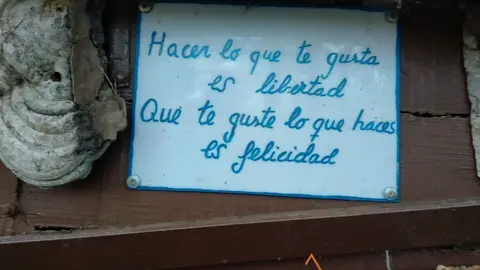 Hacer lo que te gusta
es libertad
Qué te guste lo que haces
es felicidad